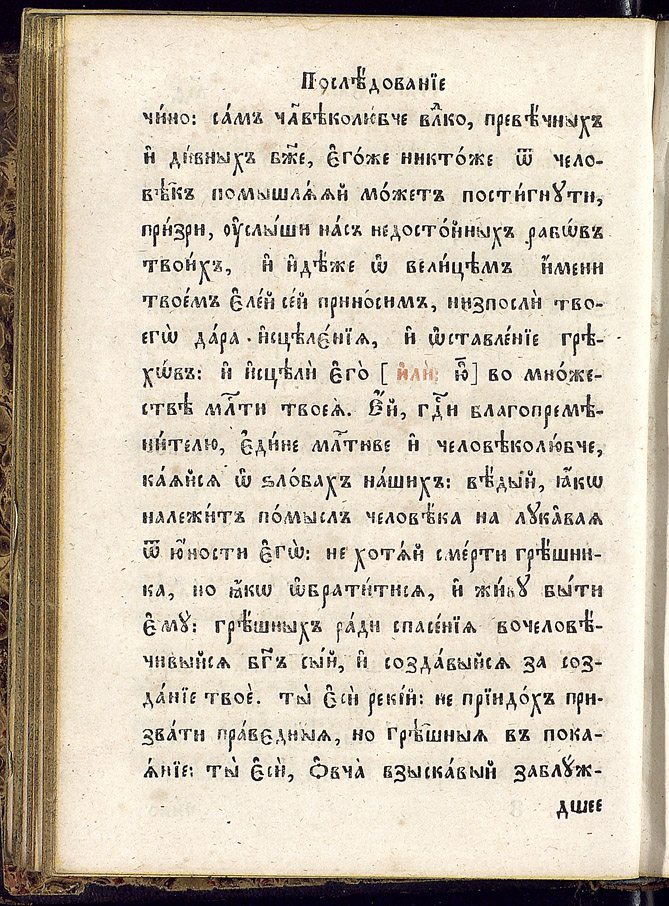 Послѣ́дованїе
чи́но: са́мъ чл҃вѣколю́бче влⷣко, превѣ́чныхъ
и҆ ди́вныхъ бж҃е, є҆го́же никто́же ѿ чело-
вѣ́къ помышлѧ́ѧй мо́жетъ пости́гнꙋти,
при́зри, ᲂу҆слы́ши на́съ недосто́йныхъ рабѡ́въ
твои́хъ, и҆ и҆дѣ́же ѡ҆ вели́цѣмъ и҆́мени
твое́мъ є҆ле́й се́й прино́симъ, низпослѝ тво-
егѡ̀ да́ра и҆сцѣле́нїѧ, и҆ ѡ҆ставле́нїе грѣ-
хѡ́въ: и҆ и҆сцѣлѝ є҆го̀ [ и҆лѝ: ю҆̀] во мно́же-
ствѣ мл҃ти твоеѧ̀. Є҆́й, гдⷭ҇и благопремѣ-
ни́телю, є҆ди́не млⷭ҇тиве и҆ человѣколю́бче,
ка́ѧйсѧ ѡ҆ ѕло́бахъ на́шихъ: вѣ́дый, ꙗ҆́кѡ
належи́тъ по́мыслъ человѣ́ка на лꙋка̑ваѧ
ѿ ю҆́ности є҆гѡ̀: не хотѧ́й сме́рти грѣ́шни-
ка, но ꙗ҆́кѡ ѡ҆брати́тисѧ, и҆ жи́вꙋ бы́ти
є҆мꙋ̀: грѣ́шныхъ ра́ди спасе́нїѧ вочеловѣ́-
чивыйсѧ бг҃ъ сы́й, и҆ созда́выйсѧ за соз-
да́нїе твоѐ. ты̀ є҆сѝ реки́й: не прїидо́хъ при-
зва́ти пра́вєдныѧ, но грѣ̑шныѧ въ пока-
ѧ́нїе: ты̀ є҆сѝ, Ѻ҆вча̀ взыска́вый заблꙋ́ж-
дшее